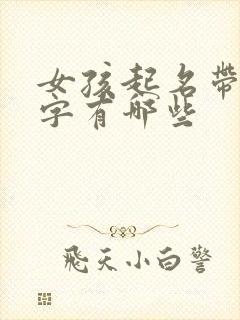 女孩起名带
字有哪些
飛天小白警